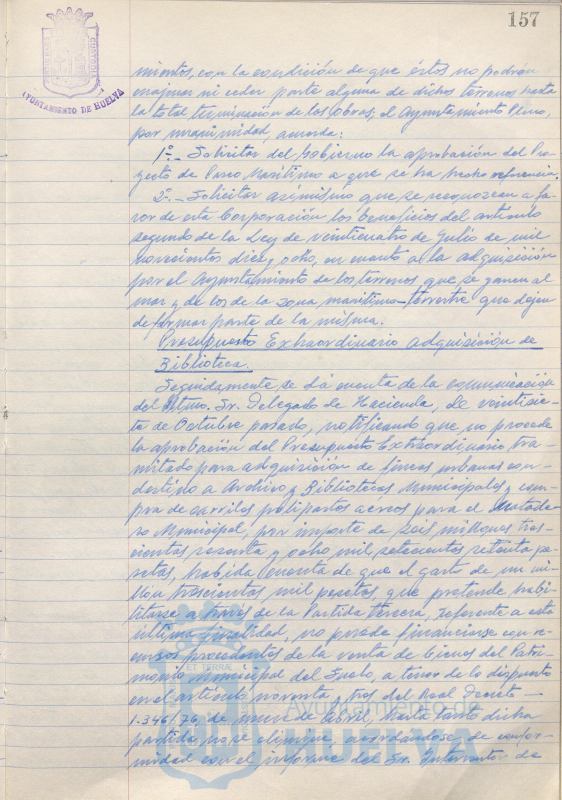 157
AYUNTAMIENTO DE HUELVA
mientos, con la condición de que éstos no podrán
enajenar ni ceder parte alguna de dichos terrenos hasta
la total terminación de las obras; el Ayuntamiento Pleno,
por unanimidad, acuerda:
1º.- Solicitar del Gobierno la aprobación del Pro-
yecto de Paseo Marítimo a que se ha hecho referencia.
2º.- Solicitar asimismo que se reconozcan a fa-
vor de esta Corporación los beneficios del artículo
segundo de la Ley de veinticuatro de Julio de mil
novecientos diez y ocho, en cuanto a la adquisición
por el Ayuntamiento de los terrenos que se ganen al
mar y de los de la zona marítimo-terrestre que dejen
de formar parte de la misma.
Presupuesto Extraordinario adquisición de
Biblioteca.
Seguidamente se dá cuenta de la comunicación
del Iltmo. Sr. Delegado de Hacienda, de veintisie-
te de Octubre pasado, notificando que no procede
la aprobación del Presupuesto Extraordinario tra-
mitado para adquisición de fincas urbanas con
destino a Archivo y Bibliotecas Municipales y com-
pra de carriles polipastos aereos para el Matade-
ro Municipal, por importe de seis millones tres-
cientas sesenta y ocho mil setecientas setenta pe-
setas, habida cuenta de que el gasto de un mi-
llón trescientas mil pesetas, que pretende habi-
litarse a través de la Partida tercera, referente a esta
última finalidad, no puede financiarse con re-
cursos procedentes de la venta de bienes del Patri-
monio Municipal del Suelo, a tenor de lo dispuesto
en el artículo noventa y tres del Real Decreto
1.346/76, de nueve de Abril, hasta tanto dicha
partida no se elimine, acordándose, de confor-
midad con el informe del Sr. Interventor de
Ayuntamiento de
HUELVA